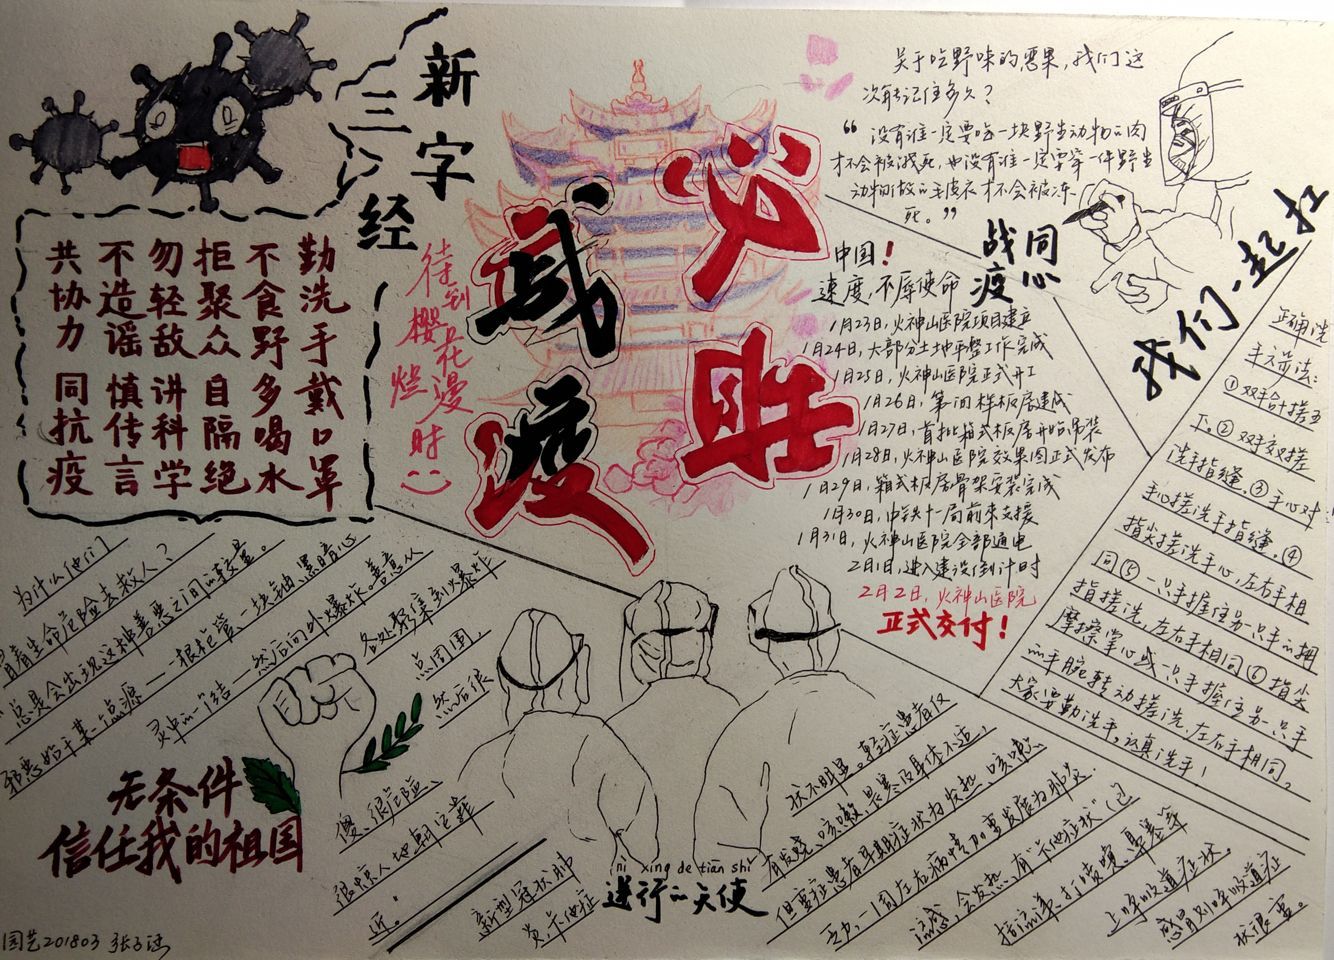 新三字经
勤洗手 戴口罩
不食野 多喝水
拒聚众 自隔绝
勿轻敌 讲科学
不造谣 慎传言
共协力 同抗疫
待到
樱花
烂漫
时
武疫
必胜
关于吃野味的恶果,我们这
次能记住多久?
“没有谁一定要吃一块野生动物的肉
才不会被饿死,也没有谁一定要穿一件野生
动物做的毛皮衣才不会被冻
死。”
同心
战疫
我们一起扛
中国!
速度,不辱使命
1月23日,火神山医院项目建立
1月24日,大部分土地平整工作完成
1月25日,火神山医院正式开工
1月26日,第一间样板房建成
1月27日,首批箱式板房开始吊装
1月28日,火神山医院效果图正式发布
1月29日,箱式板房骨架安装完成
1月30日,中铁十一局前来支援
1月31日,火神山医院全部通电
2月1日,进入建设倒计时
2月2日,火神山医院
正式交付!
正确洗
手六步法:
①双手合十搓五
下。②双手交叉搓
洗手指缝。③手心对手
手心搓洗手指缝。④
指尖搓洗手心,左右手相
同⑤一只手握住另一只手的拇
指搓洗,左右手相同⑥指尖
摩擦掌心或一只手握住另一只手
的手腕转动搓洗,左右手相同。
大家要勤洗手,认真洗手!
为什么他们
冒着生命危险去救人?
“总是会出现这种善恶之间的较量。
邪恶始于某一点源——一根枪管、一块铀、黑暗心
灵中的一个结——然后向外爆炸。善意从
各处聚集到爆炸
点周围。
然后很
傻、很危险、
很惊人地朝它靠
近。”
无条件
信任我的祖国
nì xíng de tiān shǐ
逆行的天使
新型冠状肺
炎,其他症
状不明显。轻症患者仅
有发烧、咳嗽、畏寒及身体不适,
但重症患者早期症状为发热、咳嗽、
一周左右病情加重发展为肺炎。
流感,会发热,有“其他症状”(包
括流涕、打喷嚏、鼻塞等
上呼吸道症状。
感冒则呼吸道症
状很重。
国艺201803 张子涵